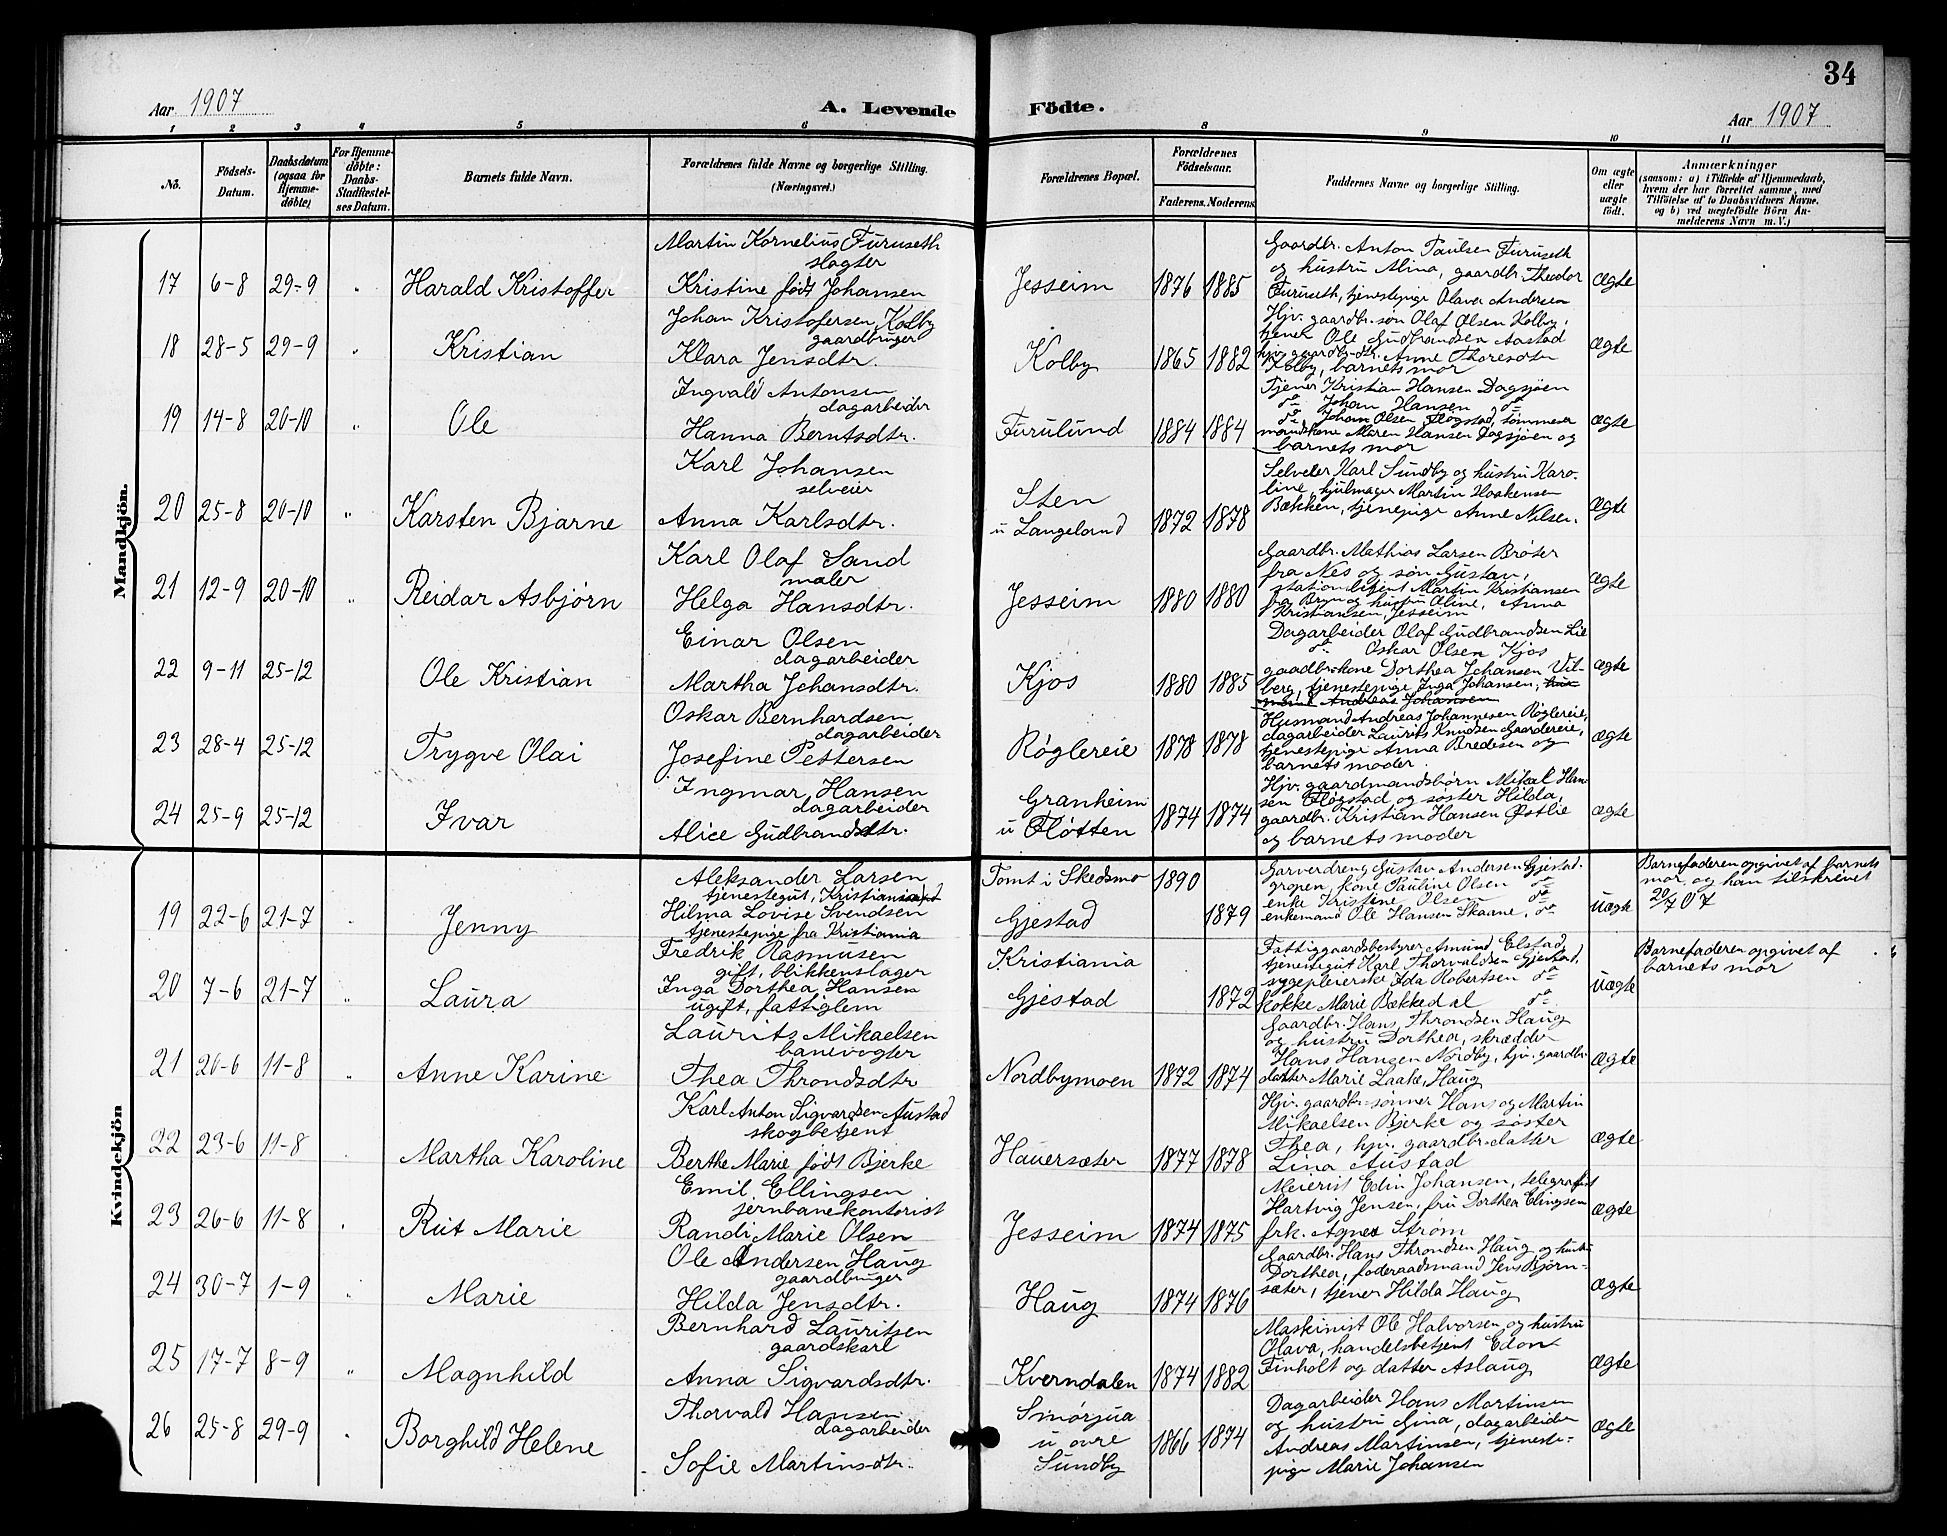 34
Aar 1907
A. Levende
Födte.
Aar 1907
1 2 3 4 5 6 8 9 10 11
No.
Födsels-Datum.
Daabsdatum (ogsaa for Hjemme-döbte)
For Hjemme-döbte: Daabs-Stadfæstel-ses Datum.
Barnets fulde Navn.
Forældrenes fulde Navne og borgerlige Stilling.
(Næringsvei.)
Forældrenes Bopæl.
Forældrenes Födselsaar.
Faderens. Moderens.
Faddernes Navne og borgerlige Stilling.
Om ægte eller uægte födt.
Anmærkninger
(saasom: a) i Tilfælde af Hjemmedaab,
hvem der har forrettet samme, med
Tilföielse af to Daabsvidners Navne.
og b) ved uægtefödte Börn An-
melderens Navn m. V.)
Mandkjön.
Martin Kornelius Furuseth
slagter
17 6-8 29-9 " Harald Kristoffer
Kristine født Johansen
Jesseim 1876 1885
Gaardbr. Anton Paulsen Furuseth
og hustru Alina, gaardbr. Theodor
Furuseth, tjenestepige Olava Andersen
Ægte
Johan Kristofersen Kolby
gaardbruger
18 28-5 29-9 " Kristian
Klara Jensdtr.
Kolby 1865 1882
Hjv. gaardbr. søn Olaf Olsen Kolby,
tjener Ole Gudbrandsen Aastad
hjv. gaardbr-dtr. Anne Thoresdtr
Kolby, barnets mor
Ægte
Ingvald Antonsen
dagarbeider
19 14-8 20-10 " Ole
Hanna Berntsdtr.
Furulund 1884 1884
Tjener Kristian Hansen Dagsjøen
do Johan Hansen do
do Johan Olsen Fløgstad, tømmer
mandskone Maren Hansen Dagsjøen og
barnets mor
Ægte
Karl Johansen
selveier
20 25-8 20-10 " Karsten Bjarne
Anna Karlsdtr.
Sten
u Langeland
1872 1878
Selveier Karl Sundby og hustru Karo-
line, hjulmager Martin Haakensen
Bækken, tjenepige Anne Nilsen.
Ægte
Karl Olaf Sand
maler
21 12-9 20-10 " Reidar Asbjørn
Helga Hansdtr.
Jesseim 1880 1880
Gaardbr. Mathias Larsen Brøter
fra Nes og søn Gustav,
stationsbetjent Martin Kristiansen
fra Bryn og hustru Oline, Anna
Kristiansen, Jesseim
Ægte
Einar Olsen
dagarbeider
22 9-11 25-12 Ole Kristian
Martha Johansdtr.
Kjos 1880 1885
Dagarbeider Olaf Gudbrandsen Lie
do Oskar Olsen Kjos
gaardbr-kone Dorthea Johansen Vil-
berg, tjenestepige Inga Johansen, hus-
mand Andreas Johansen
Ægte
Oskar Bernhardsen
dagarbeider
23 28-4 25-12 Trygve Olai
Josefine Pettersen
Røglereie 1878 1878
Husmand Andreas Johannesen Røglereie,
dagarbeider Laurits Knudsen Gaardereie,
tjenestepige Anna Bredesen og
barnets moder.
Ægte
Ingmar Hansen
dagarbeider
24 25-9 25-12 Ivar
Alice Gudbrandsdtr.
Granheim
u Fløtten
1874 1874
Hjv. gaardmandsbørn Mikal Han-
sen Fløgstad og søster Hilda,
gaardbr. Kristian Hansen Østlie
og barnets moder
Ægte
Kvindekjön
Aleksander Larsen
tjenestegut, Kristiansand
19 22-6 21-7 Jenny
Hilma Lovise Svendsen
tjenestepige fra Kristiania
Tomt i Skedsmo 1890
Gjestad 1879
Garverdreng Gustav Andersen Gjestad-
gropen, kone Pauline Olsen do
enke Kristine Olsen do
enkemand Ole Hansen Skaane, do
Uægte
Barnefaderen opgivet af barnets
mor og han tilskrevet
20/7 07
Fredrik Rasmusen
gift, blikkenslager
20 7-6 21-7 " Laura
Inga Dorthea Hansen
ugift, fattiglem
Kristiania
Gjestad 1872
Fattiggaardsbestyrer Amund Elstad,
tjenestegut Karl Thorvaldsen Gjestad,
sygepleierske Ida Robertsen do
kokke Marie Bækkedal do
Uægte
Barnefaderen opgivet af
barnets mor
Laurits Mikaelsen
banevogter
21 20-6 11-8 " Anne Karine
Thea Throndsdtr
Nordbymoen 1872 1874
Gaardbr. Hans Throndsen Haug
og hustru Dorthea, skrædder
Hans Hansen Nordby, hjv. gaardbr-
datter Marie Laake, Haug
Ægte
Karl Anton Sigvardsen Austad
skogbetjent
22 23-6 11-8 Martha Karoline
Berthe Marie født Bjerke
Hauersæter 1877 1878
Hjv. gaardbr-sønner Hans og Martin
Mikaelsen Bjerke og søster
Thea, hjv. gaardbr-datter
Lina Austad
Ægte
Emil Ellingsen
jernbanekontorist
23 26-6 11-8 " Rut Marie
Randi Marie Olsen
Jesseim 1874 1875
Meierist Edin Johansen, telegrafist
Hartvig Jensen, fru Dorthea Elingsen
frk. Agnes Strøm
Ægte
Ole Andersen Haug
gaardbruger
24 30-7 1-9 " Marie
Hilda Jensdtr.
Haug 1874 1876
Gaardbr. Hans Throndsen Haug og hustru
Dorthea, føderaadsmand Jens Bjørn-
sæter, tjener Hilda Haug
Ægte
Bernhard Lauritsen
gaardskarl
25 17-7 8-9 " Magnhild
Anna Sigvardsdtr.
Kverndalen 1874 1882
Maskinist Ole Halvorsen og hustru
Olava, handelsbetjent Edon
Finholt og datter Aslaug
Ægte
Thorvald Hansen
dagarbeider
26 25-8 29-9 " Borghild Helene
Sofie Martinsdtr.
Smørjua
u øvre
Sundby
1866 1874
Dagarbeider Hans Martinsen
og hustru Gina, dagarbeider
Andreas Martinsen, tjeneste-
pige Marie Johansen
Ægte